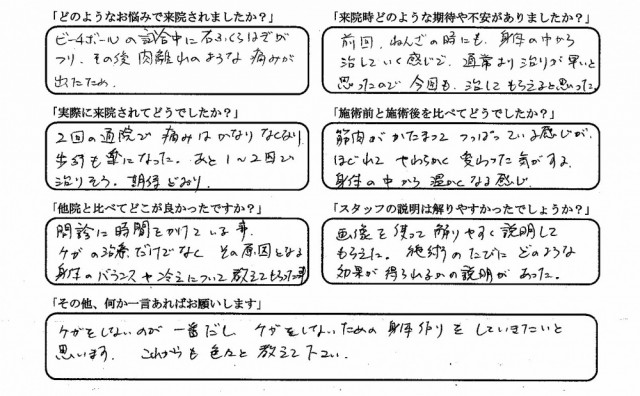 「どのようなお悩みで来院されましたか？」
ビーチボールの試合中に右ふくらはぎが
つり、その後肉離れのような痛みが
出たため。
「来院時どのような期待や不安がありましたか？」
前回、ねんざの時にも、身体の中から
治していく感じで、通常より治りが早いと
思ったので今回も、治してもらえると思った。
「実際に来院されてどうでしたか？」
2回の通院で痛みはかなりなくなり
歩行も楽になった。あと1〜2回で
治りそう。期待どおり。
「施術前と施術後を比べてどうでしたか？」
筋肉がかたまってつっぱっている感じが、
ほぐれてやわらかく変わった気がする。
身体の中から温かくなる感じ。
「他院と比べてどこが良かったですか？」
問診に時間をかけている事。
ケガの治療だけでなくその原因となる
身体のバランスや冷えについて教えてもらった事
「スタッフの説明は解りやすかったでしょうか？」
画像を使って解りやすく説明して
もらえた。施術のたびにどのような
効果が得られるかの説明があった。
「その他、何か一言あればお願いします」
ケガをしないのが一番だし、ケガをしないための身体作りをしていきたいと
思います。これからも色々と教えて下さい。